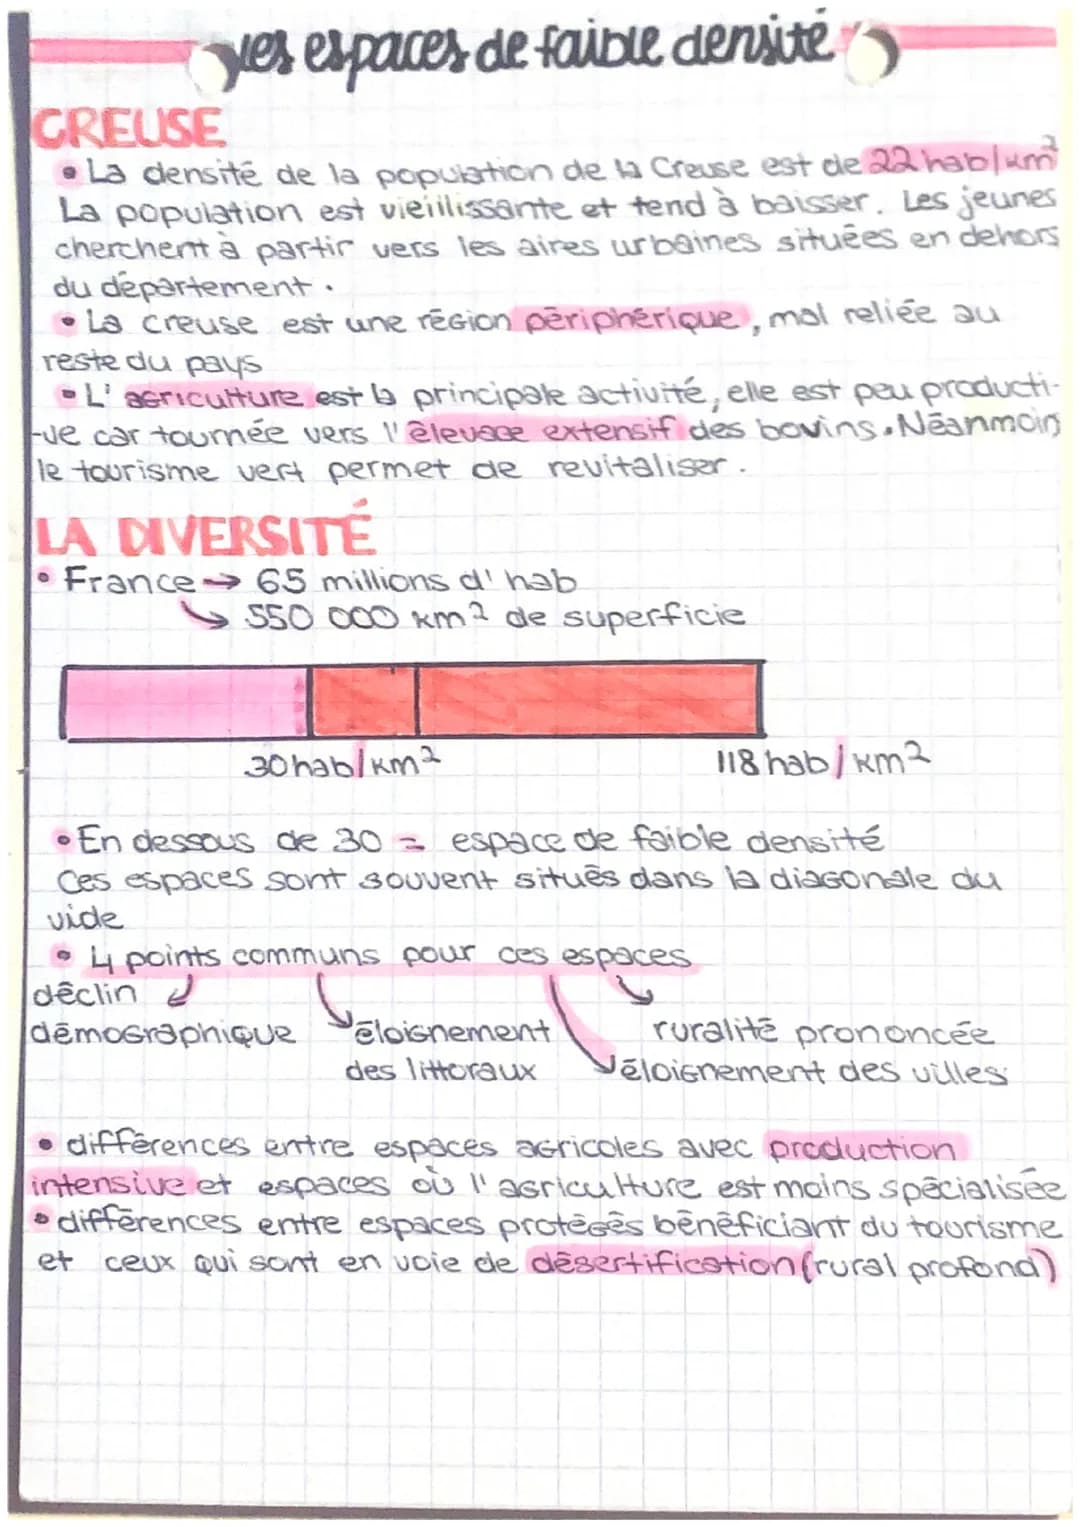 Les espaces de faible densité
CREUSE
• La densité de la population de la Creuse est de 22 hab/km²
La population est vieillissante et tend à baisser. Les jeunes
cherchent à partir vers les aires urbaines situées en dehors
du département.
• La creuse est une région périphérique, mal reliée au
reste du pays
• L'agriculture est la principale activité, elle est peu producti-
-ve car tournée vers l'élevage extensif des bovins. Néanmoin
le tourisme vert permet de revitaliser.
LA DIVERSITÉ
• France → 65 millions d'hab
↳ 550 000 km² de superficie
30 hab/km² 118 hab/km²
• En dessous de 30 = espace de faible densité
Ces espaces sont souvent situés dans la diagonale du
vide
• 4 points communs pour ces espaces
déclin
démographique éloignement ruralité prononcée
des littoraux éloignement des villes
• différences entre espaces agricoles avec production
intensive et espaces où l'agriculture est moins spécialisée
• différences entre espaces protégés bénéficiant du tourisme
et ceux qui sont en voie de désertification (rural profond)